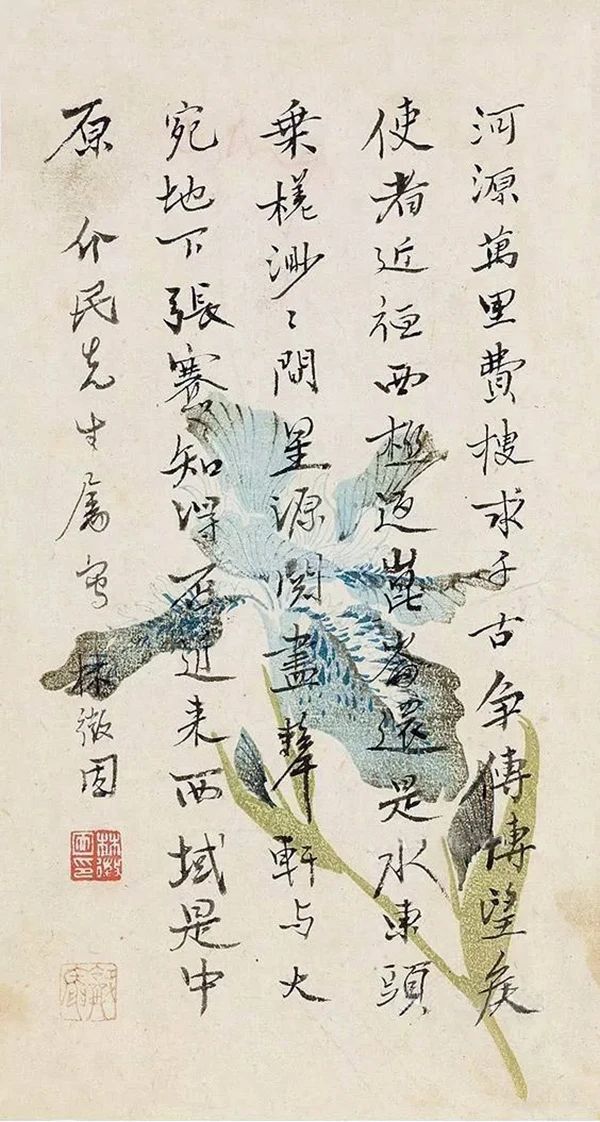 河源萬里費搜求千古争傳博望矦
使者近從西極返崑崙還是水東頭
乘槎渺〻問星源閱盡犛軒与大
宛地下張騫知得否近来西域是中
原 介民先生屬寫 林徽因
林徽因印